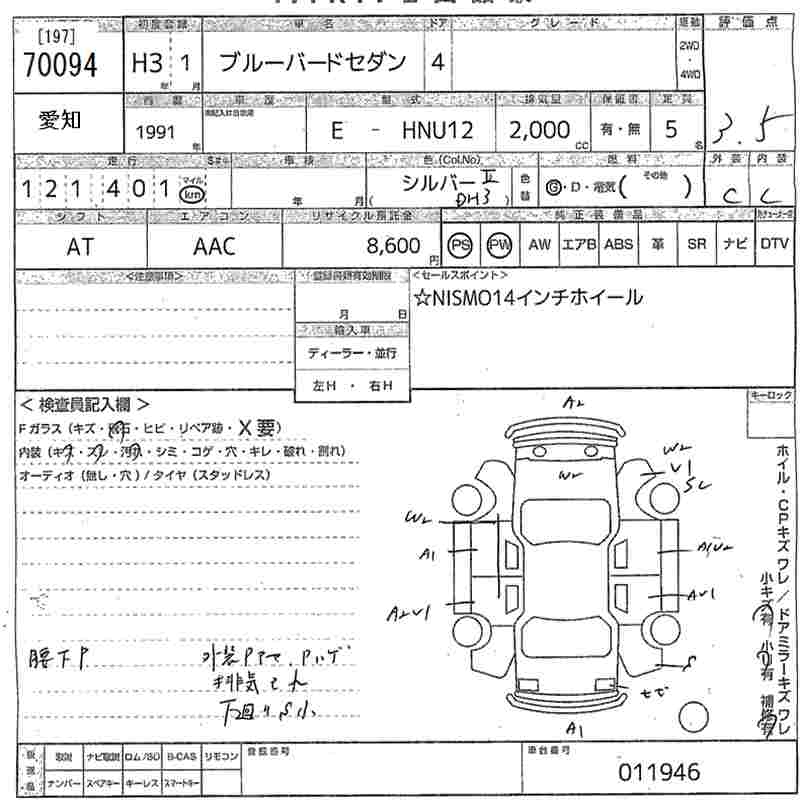 [197]
70094
初度登録 車名 ドア グレード 駆動 評価点
H3 1 ブルーバードセダン 4 2WD・4WD
年 月
3.5
愛知
西暦 車歴 型式 排気量 保証書 定員
1991 年 E - HNU12 2,000 CC 有・無 5 名
走行 車検 色(Col.No) 燃料 外装 内装
121401 マイル km 年 月 シルバーⅡ ( DH3 ) 色替 G・D・電気( その他 ) C C
シフト エアコン リサイクル預託金 純正装備品
AT AAC 8,600 円 PS PW AW エアB ABS 革 SR ナビ DTV
<注意事項> 登録書類有効期限 <セールスポイント>
月 日
☆NISMO14インチホイール
輸入車
ディーラー・並行
左H ・ 右H
< 検査員記入欄 >
キーロック
Fガラス(キズ・飛石・ヒビ・リペア跡・X要)
内装(キズ・スレ・汚れ・シミ・コゲ・穴・キレ・破れ・割れ)
オーディオ(無し・穴)/タイヤ(スタッドレス)
A2
W2
W2
V1
SC
W2
A1
A1U2
A2V1
AV1
S
ヒビ
A1
ホイル・CPキズ ワレ/ドアミラーキズ ワレ
小キズ有 小凹有 補修有
腰下P
外装Pアセ、Pハゲ
排気モレ
下回りS小
取説 ナビ取説 ロム/SD B-CAS リモコン 登録番号 車台番号
ナンバー スペアキー キーレス スマートキー
011946